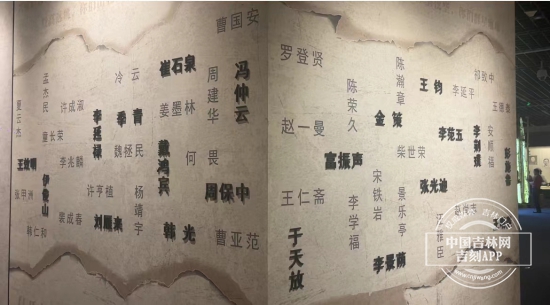 曹国安
崔石泉
冷云
周建华
冯仲云
孟杰民
许成淑
李延禄
季青
姜墨林
夏云杰
童长荣
李兆麟
魏拯民
戴鸿宾
何畏
王效明
伊俊山
周保中
张甲洲
许亨植
杨靖宇
裴成春
刘曙来
韩光
曹亚范
韩仁和
罗登贤
陈翰章
王钧
祁致中
李延平
王德泰
陈荣久
金策
赵一曼
李荆璞
安顺福
柴世荣
富振声
王仁斋
宋铁岩
张光迪
李学福
景乐亭
汪雅臣
于天放
李景荫
中国吉林网
吉刻APP
www.cnjiwang.com